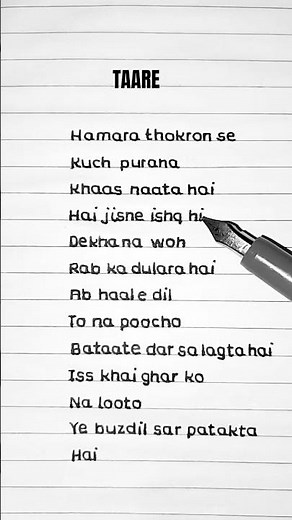 TAARE
Hamara thokron se
Kuch purana
Khaas naata hai
Hai jisne ishq hi
Dekha na woh
Rab ka dulara hai
Ab haal e dil
To na poocho
Bataate dar sa lagta hai
Iss khai ghar ko
Na looto
Ye buzdil sar patakta
Hai